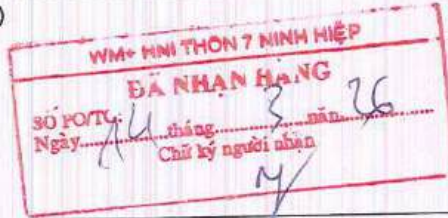 WM+ HNI THÔN 7 NINH HIỆP
ĐÃ NHẬN HÀNG
SỐ PO/TC:
Ngày 14 tháng 3 năm 26
Chữ ký người nhận